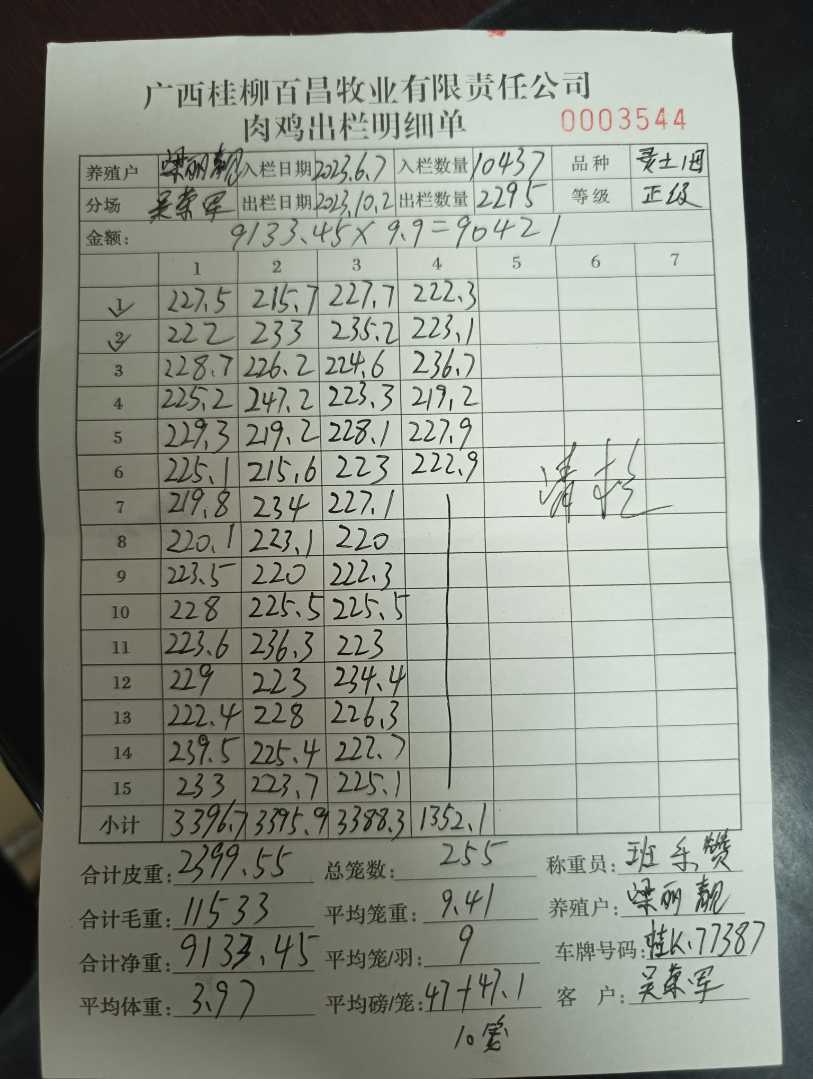 广西桂柳百昌牧业有限责任公司
肉鸡出栏明细单 0003544
养殖户 梁丽靓 入栏日期 2023.6.7 入栏数量 10437 品种 土1母
分场 吴荣军 出栏日期 2023.10.2 出栏数量 2295 等级 正级
金额: 9133.45×9.9=90421
1 2 3 4 5 6 7
1 227.5 215.7 227.7 222.3
2 222 233 235.2 223.1
3 228.7 226.2 224.6 236.7
4 225.2 247.2 223.3 219.2
5 229.3 219.2 228.1 227.9
6 225.1 215.6 223 222.9
清
7 219.8 234 227.1
8 220.1 223.1 220
9 223.5 220 222.3
10 228 225.5 225.5
11 223.6 236.3 223
12 229 223 234.4
13 222.4 228 226.3
14 239.5 225.4 222.7
15 233 223.7 225.1
小计 3396.7 3395.9 3388.3 1352.1
合计皮重: 2399.55 总笼数: 255 称重员: 班乐赞
合计毛重: 11533 平均笼重: 9.41 养殖户: 梁丽靓
合计净重: 9133.45 平均笼/羽: 9 车牌号码: 桂K.77387
平均体重: 3.97 平均磅/笼: 47+47.1 客 户: 吴荣军
10